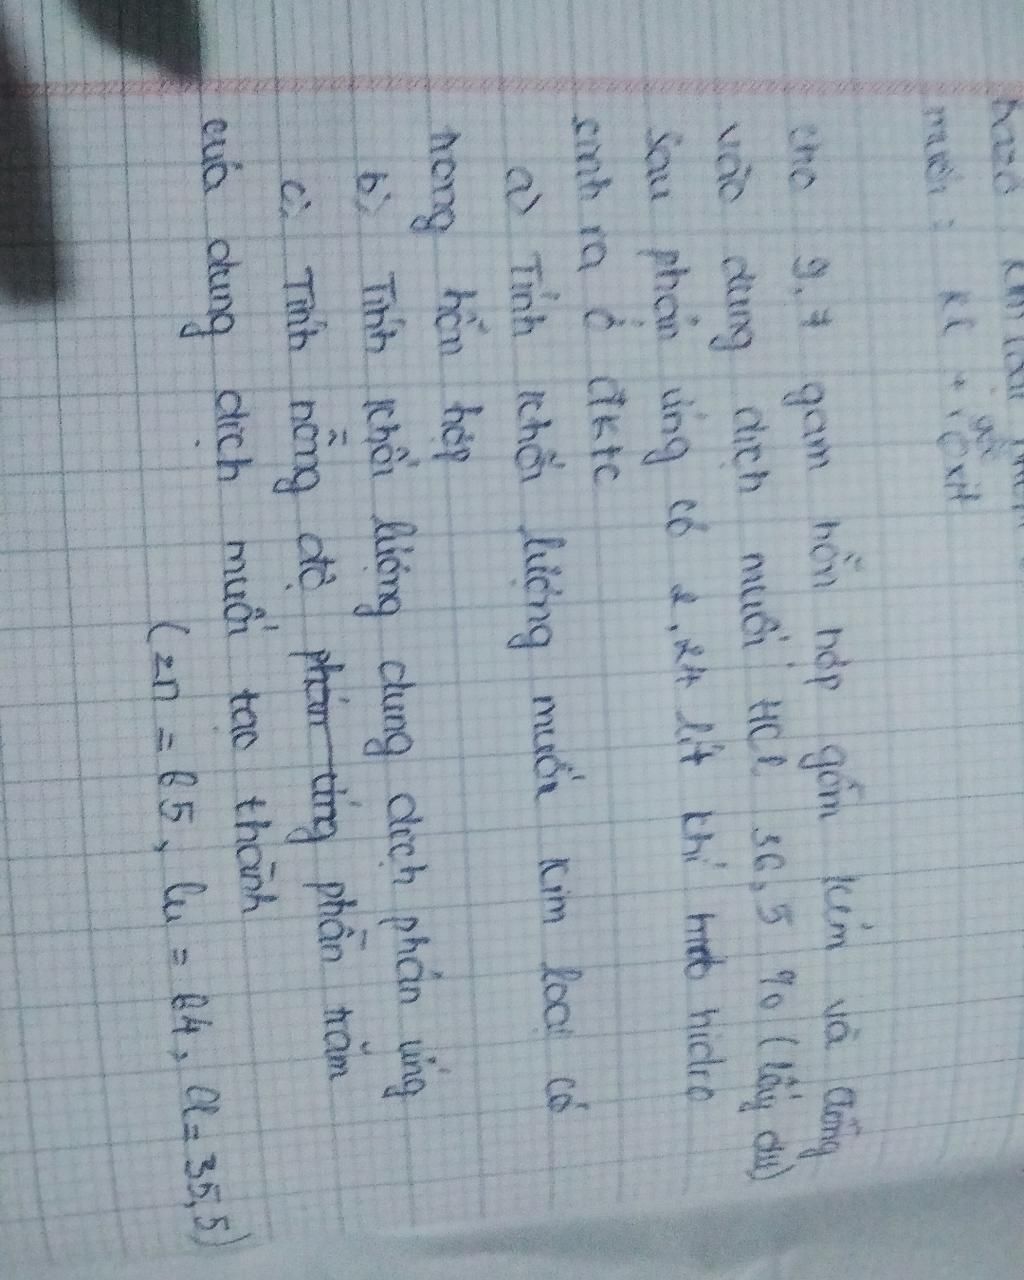 muối : KL + gốc axit
cho 9,7 gam hỗn hợp gồm kẽm và đồng
vào dung dịch muối HCl 36,5 % (lấy dư)
sau phản ứng có 2,24 lít khí hidro
sinh ra ở đktc
a) Tính khối lượng muối kim loại có
trong hỗn hợp
b) Tính khối lượng dung dịch phản ứng
c) Tính nồng độ phản ứng phần trăm
của dung dịch muối tạo thành
(Zn = 65, Cu = 64, Cl = 35,5)